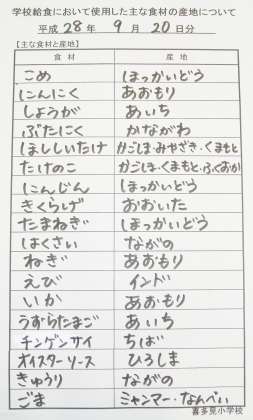 学校給食において使用した主な食材の産地について
平成28年 9月 20日分
【主な食材と産地】
食材 産地
こめ ほっかいどう
にんにく あおもり
しょうが あいち
ぶたにく かながわ
ほししいたけ かごしま・みやざき・くまもと
たけのこ かごしま・くまもと・ふくおか
にんじん ほっかいどう
きくらげ おおいた
たまねぎ ほっかいどう
はくさい ながの
ねぎ あおもり
えび インド
いか あおもり
うずらたまご あいち
チンゲンサイ ちば
オイスターソース ひろしま
きゅうり ながの
ごま ミャンマー・なんべい
喜多見小学校